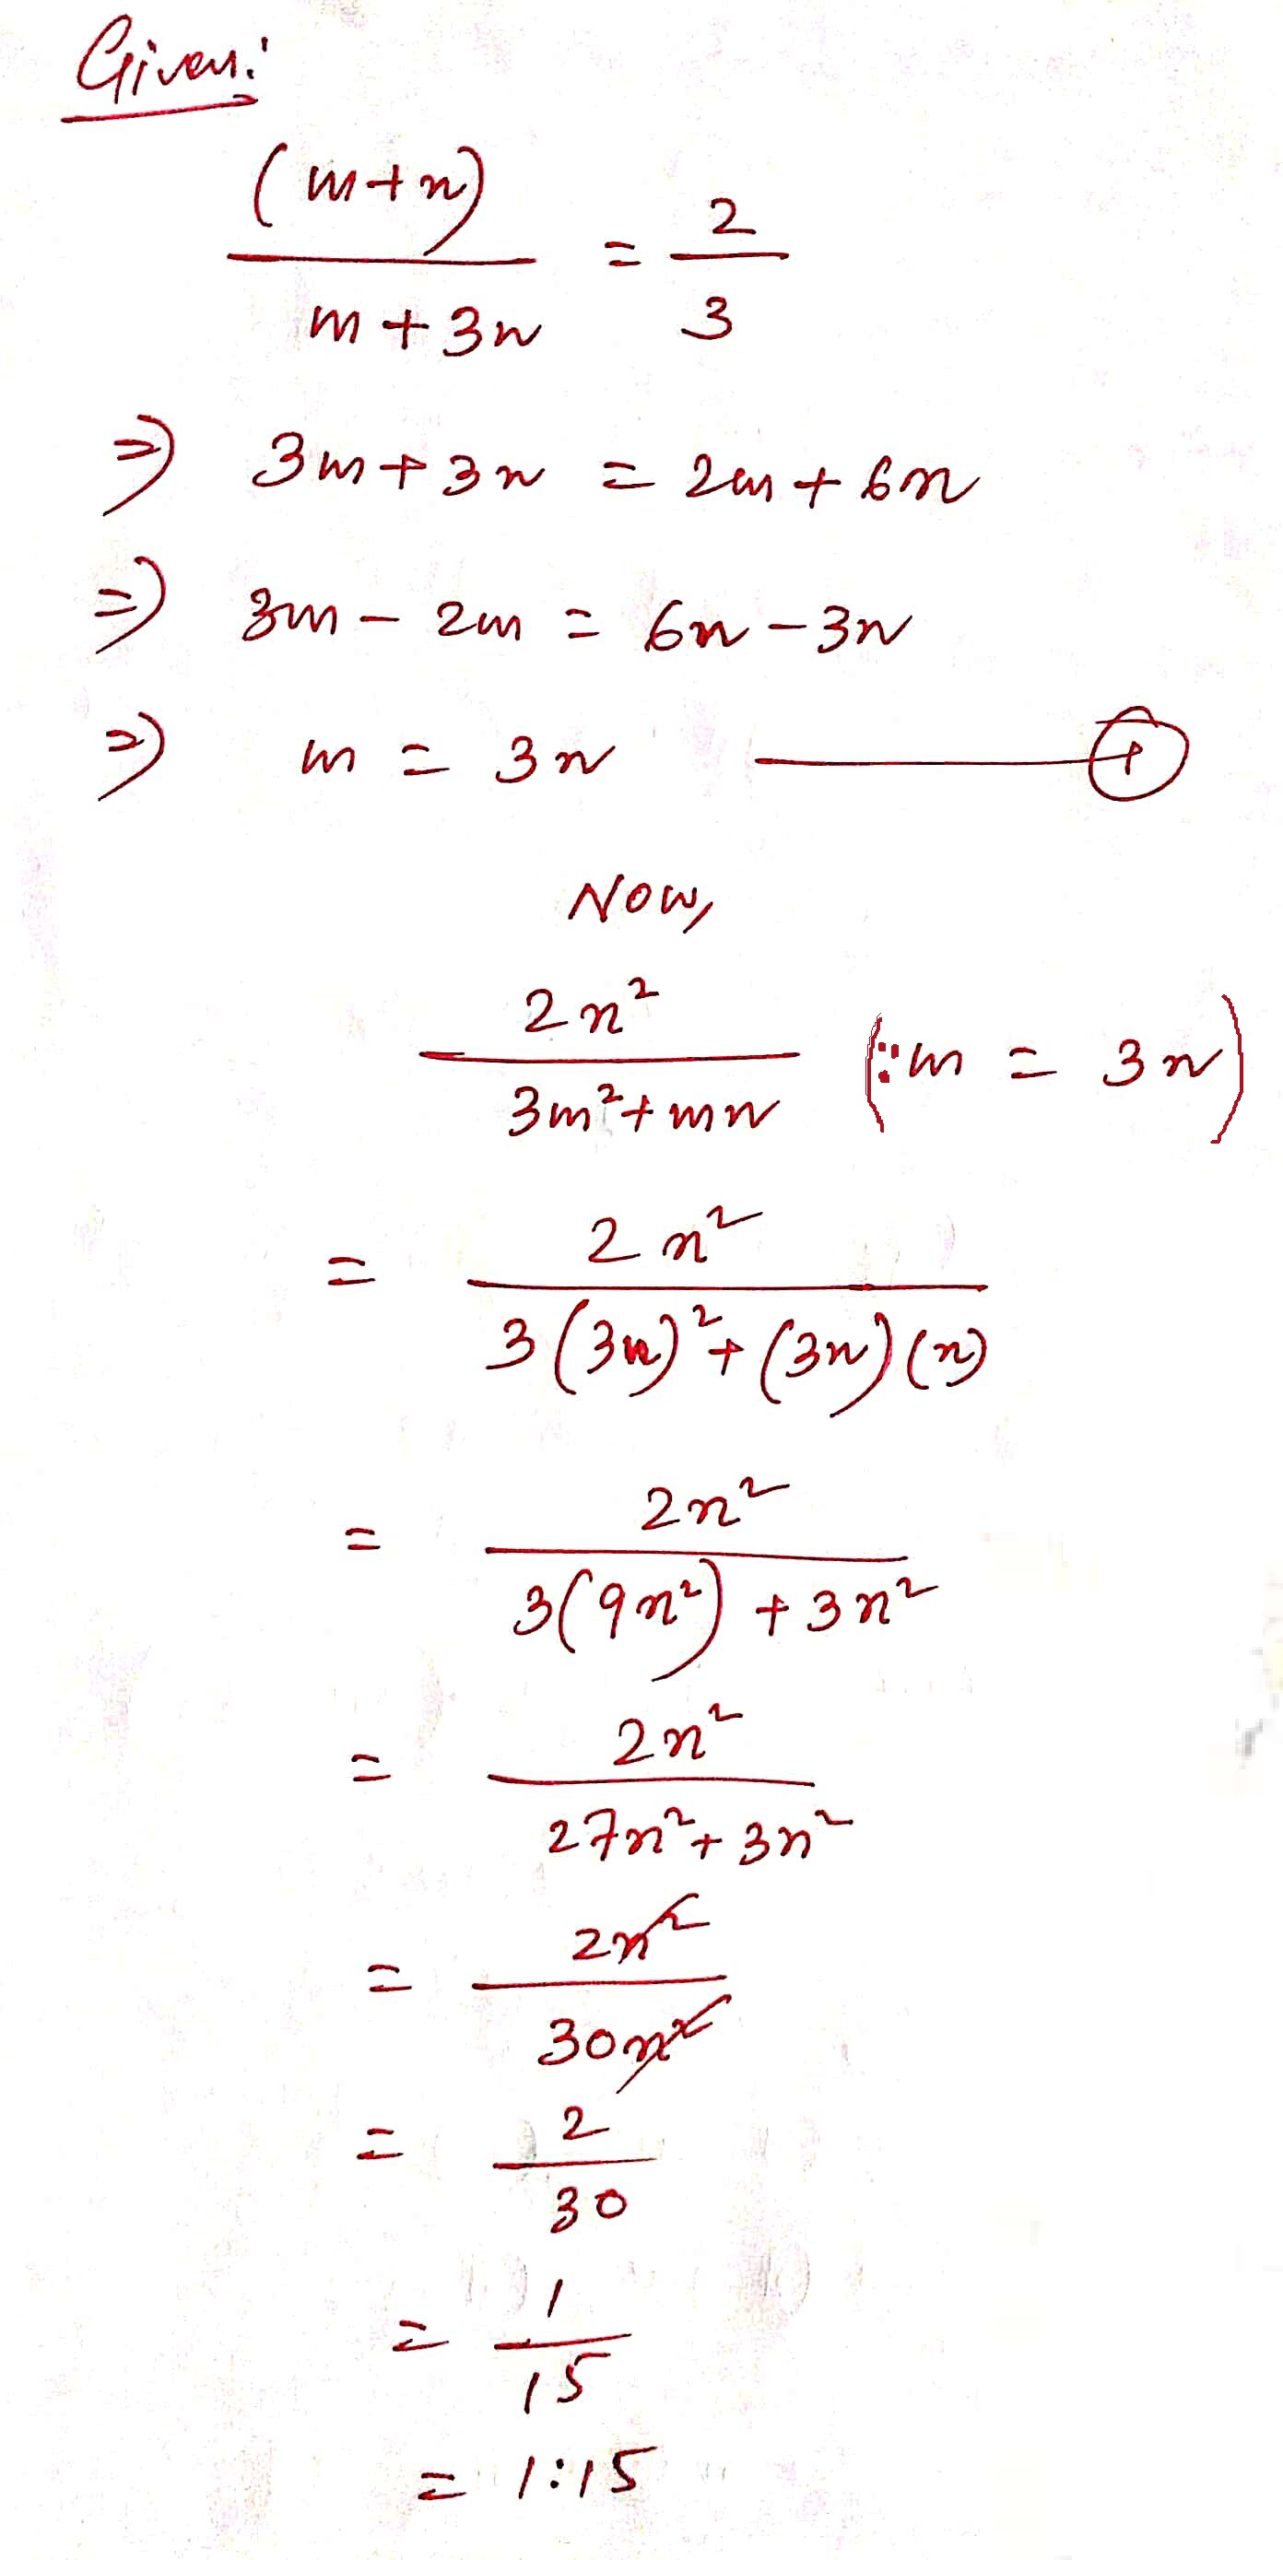 Given:
(m+n)/(m+3n) = 2/3
⇒ 3m+3n = 2m+6n
⇒ 3m-2m = 6n-3n
⇒ m = 3n
Now,
2n²/(3m²+mn) (∵ m = 3n)
= 2n²/(3(3n)²+(3n)(n))
= 2n²/(3(9n²)+3n²)
= 2n²/(27n²+3n²)
= 2n²/30n²
= 2/30
= 1/15
= 1:15